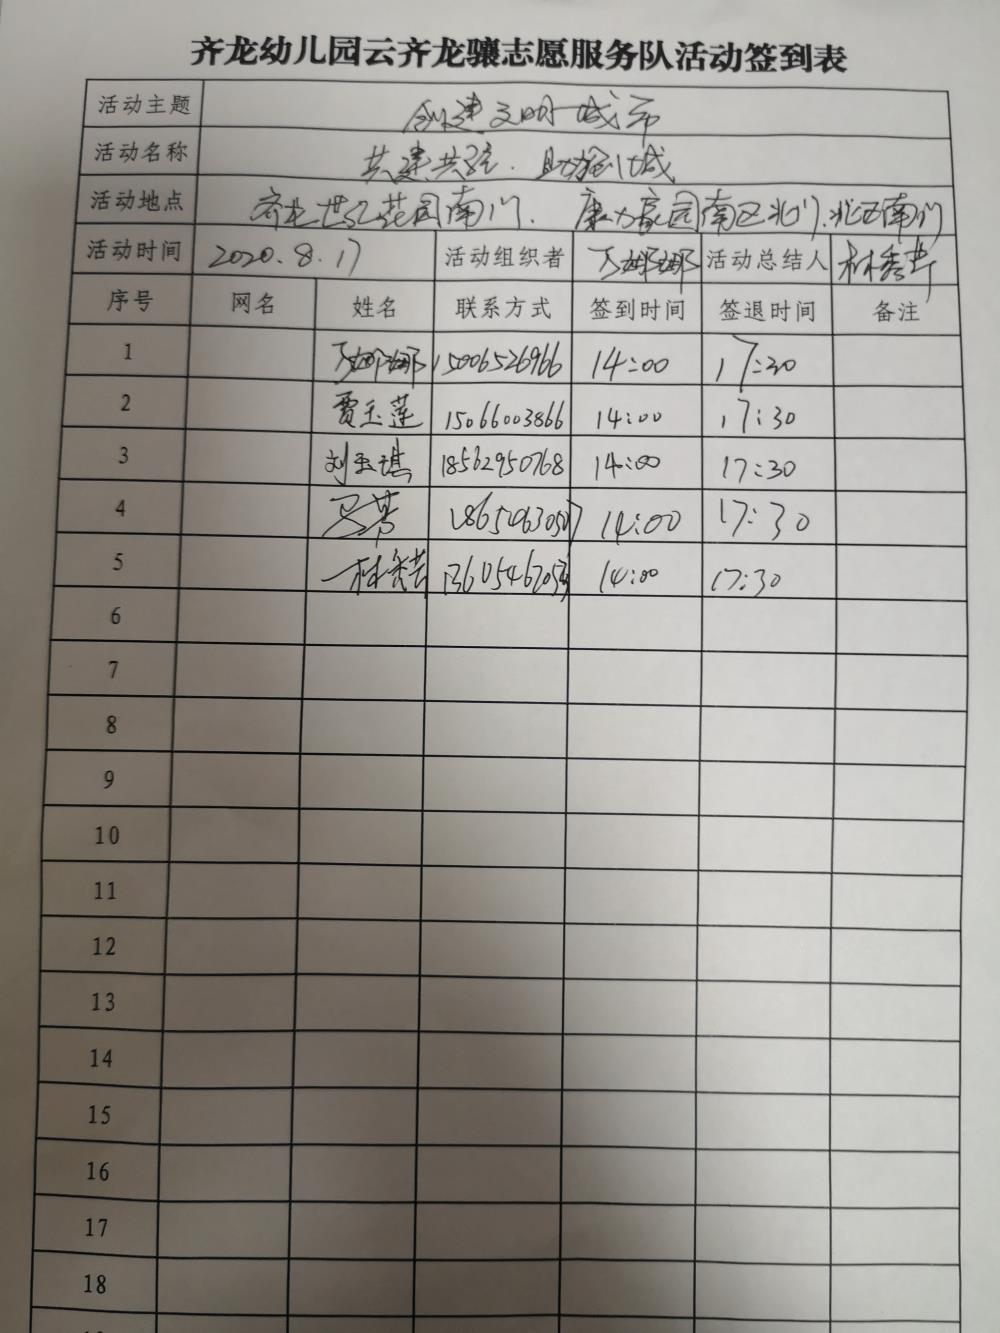 齐龙幼儿园云齐龙骧志愿服务队活动签到表
活动主题 创建文明城市
活动名称 共建共筑.助推创城
活动地点 齐龙世纪花园南门.康力家园南区北门.北区南门
活动时间 2020.8.17 活动组织者 万娜娜 活动总结人
序号 网名 姓名 联系方式 签到时间 签退时间 备注
1 万娜娜 15006526966 14:00 17:30
2 贾玉莲 15066003866 14:00 17:30
3 刘玉琪 18562950768 14:00 17:30
4 14:00 17:30
5 14:00 17:30
6
7
8
9
10
11
12
13
14
15
16
17
18